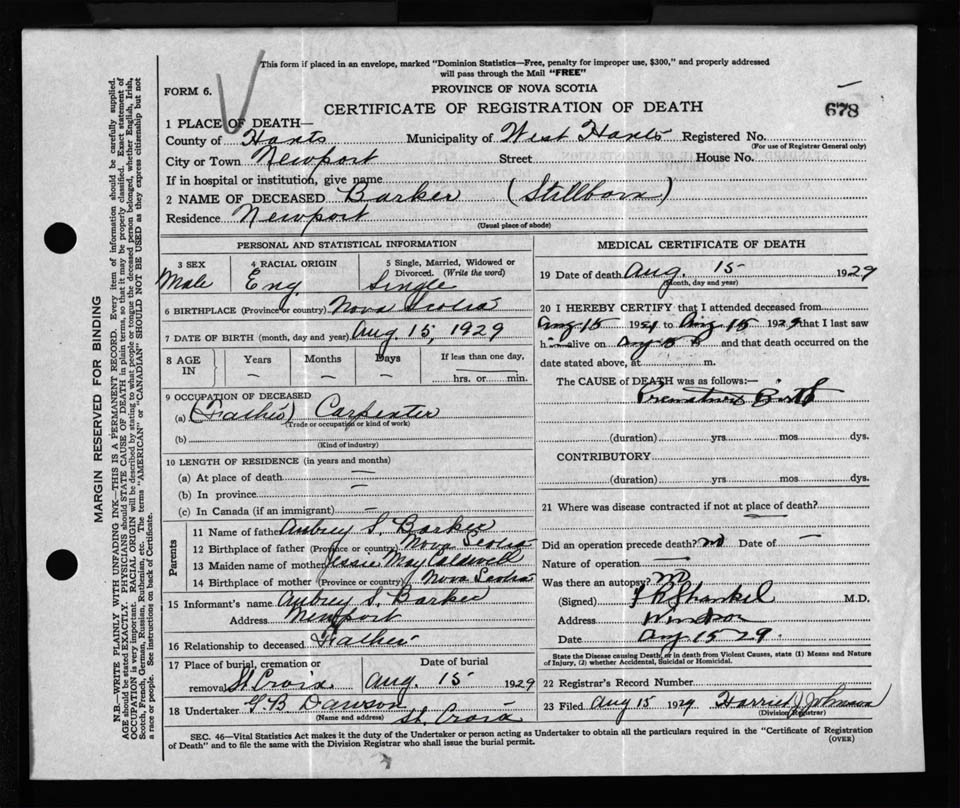 This form if placed in an envelope, marked "Dominion Statistics—Free, penalty for improper use, $300," and properly addressed
will pass through the Mail "FREE"
FORM 6.
PROVINCE OF NOVA SCOTIA
CERTIFICATE OF REGISTRATION OF DEATH
678
1 PLACE OF DEATH—
County of Hants Municipality of West Hants Registered No.
(For use of Registrar General only)
City or Town Newport Street House No.
If in hospital or institution, give name
2 NAME OF DECEASED Barker (Stillborn)
Residence Newport
(Usual place of abode)
PERSONAL AND STATISTICAL INFORMATION
3 SEX 4 RACIAL ORIGIN 5 Single, Married, Widowed or
Divorced. (Write the word)
Male Eng Single
6 BIRTHPLACE (Province or country) Nova Scotia
7 DATE OF BIRTH (month, day and year) Aug 15, 1929
8 AGE IN Years Months Days If less than one day,
— — — hrs. or min.
9 OCCUPATION OF DECEASED
(a) (Father) Carpenter
(Trade or occupation or kind of work)
(b)
(Kind of industry)
10 LENGTH OF RESIDENCE (in years and months)
(a) At place of death —
(b) In province —
(c) In Canada (if an immigrant) —
Parents
11 Name of father Aubrey S. Barker
12 Birthplace of father (Province or country) Nova Scotia
13 Maiden name of mother Jessie May Caldwell
14 Birthplace of mother (Province or country) Nova Scotia
15 Informant's name Aubrey S. Barker
Address Newport
16 Relationship to deceased Father
17 Place of burial, cremation or Date of burial
removal St. Croix Aug 15 1929
18 Undertaker G.B. Dawson
(Name and address) St. Croix
MEDICAL CERTIFICATE OF DEATH
19 Date of death Aug. 15 1929
(Month, day and year)
20 I HEREBY CERTIFY that I attended deceased from
Aug 15 1929 to Aug 15 1929 that I last saw
h alive on and that death occurred on the
date stated above, at m.
The CAUSE of DEATH was as follows:—
Premature Birth
(duration) yrs mos dys.
CONTRIBUTORY
(duration) yrs mos dys.
21 Where was disease contracted if not at place of death?
Did an operation precede death? no Date of —
Nature of operation
Was there an autopsy? no
(Signed) Shankel M.D.
Address Windsor
Date Aug 15 29.
State the Disease causing Death, or in death from Violent Causes, state (1) Means and Nature
of Injury, (2) whether Accidental, Suicidal or Homicidal.
22 Registrar's Record Number
23 Filed Aug 15 1929 Harriet J Johnson
(Division Registrar)
SEC. 46—Vital Statistics Act makes it the duty of the Undertaker or person acting as Undertaker to obtain all the particulars required in the "Certificate of Registration
of Death" and to file the same with the Division Registrar who shall issue the burial permit.
(OVER)
MARGIN RESERVED FOR BINDING
N.B.—WRITE PLAINLY WITH UNFADING INK—THIS IS A PERMANENT RECORD. Every item of information should be carefully supplied.
AGE should be stated EXACTLY. PHYSICIANS should STATE CAUSE OF DEATH in plain terms, so that it may be properly classified. Exact statement of
OCCUPATION is very important. RACIAL ORIGIN will be described by stating to what people or tongue the deceased person belonged, whether English, Irish,
Scotch, French, German, Russian, Ruthenian, etc. The terms "AMERICAN" or "CANADIAN" SHOULD NOT BE USED as they express citizenship but not
a race or people. See instructions on back of Certificate.